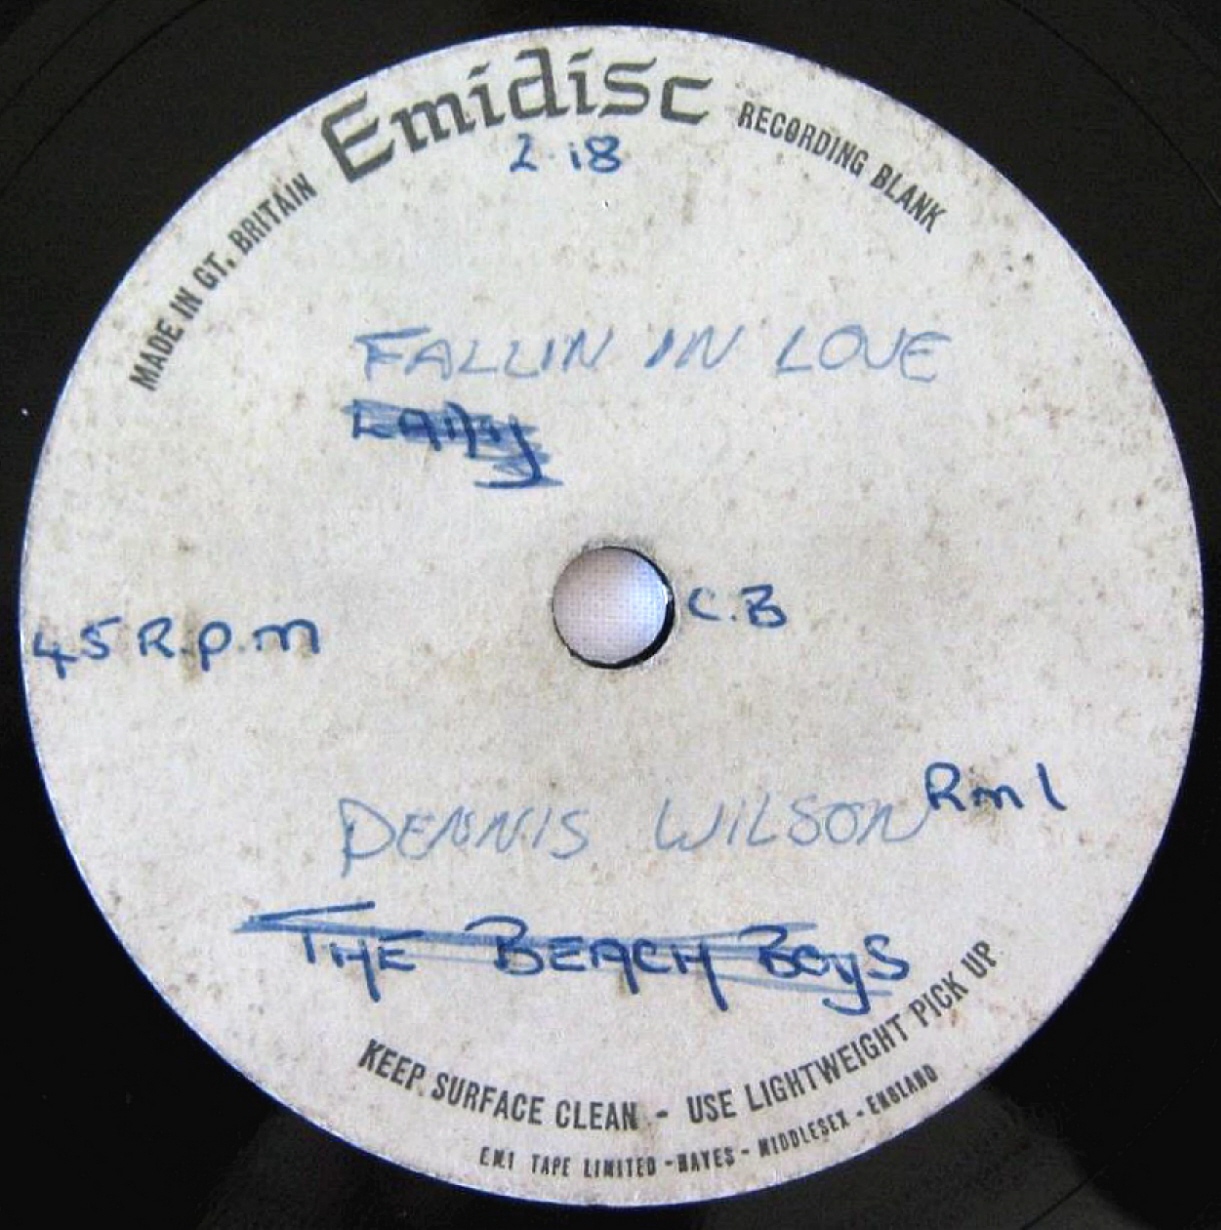 MADE IN GT. BRITAIN Emidisc RECORDING BLANK
2.18
FALLIN IN LOVE
Lady
45 R.p.m
C.B
Rm1
DENNIS WILSON
THE BEACH BOYS
KEEP SURFACE CLEAN - USE LIGHTWEIGHT PICK UP
E.M.I TAPE LIMITED - HAYES - MIDDLESEX - ENGLAND